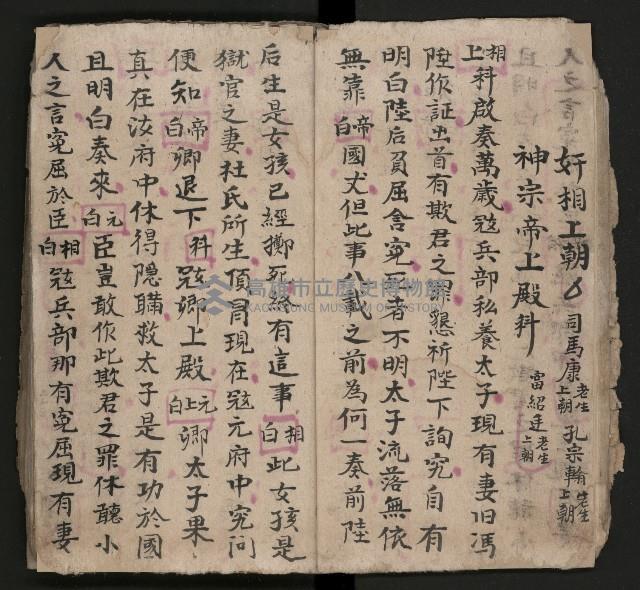 奸相上朝 司馬康老生上朝 孔宗翰老生上朝
神宗帝上殿科 富紹廷老生上朝
相上科啟奏萬歲冦兵部私養太子現有妻旧馮
陞作証出首有欺君之罪懇祈陛下詢究自有
明白陸后負屈含冤 者不明太子流落無依
無靠帝白國丈但此事八載之前為何一奏前陸
后生是女孩已經擲死 有這事相白此女孩是
獄官之妻杜氏所生頂 現在冦元府中究问
便知帝白卿退下科冦卿上殿元上白卿太子果
真在汝府中休得隱瞞救太子是有功於國
且明白奏來元白臣豈敢作此欺君之罪休聽小
人之言寃屈於臣相白冦兵部那有寃屈現有妻
高雄市立歷史博物館
KAOHSIUNG MUSEUM OF HISTORY